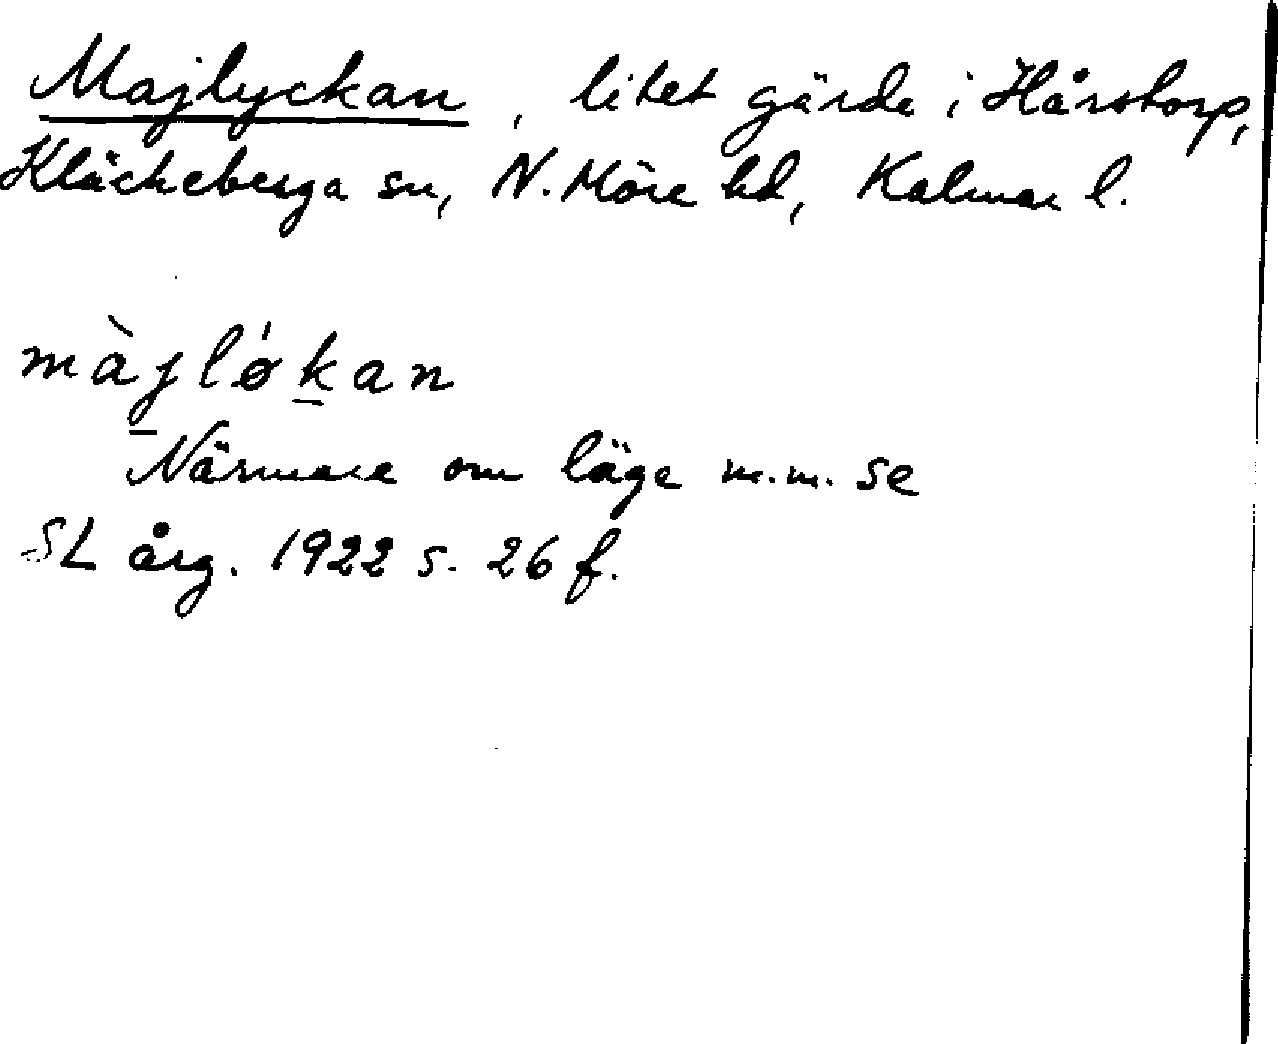 Majlyckan, litet gärde i Hårstorp,
Kläckeberga sn, N. Möre hd, Kalmar l.
màjlǿkan
Närmare om läge m.m. se
SL årg. 1922 s. 26 f.